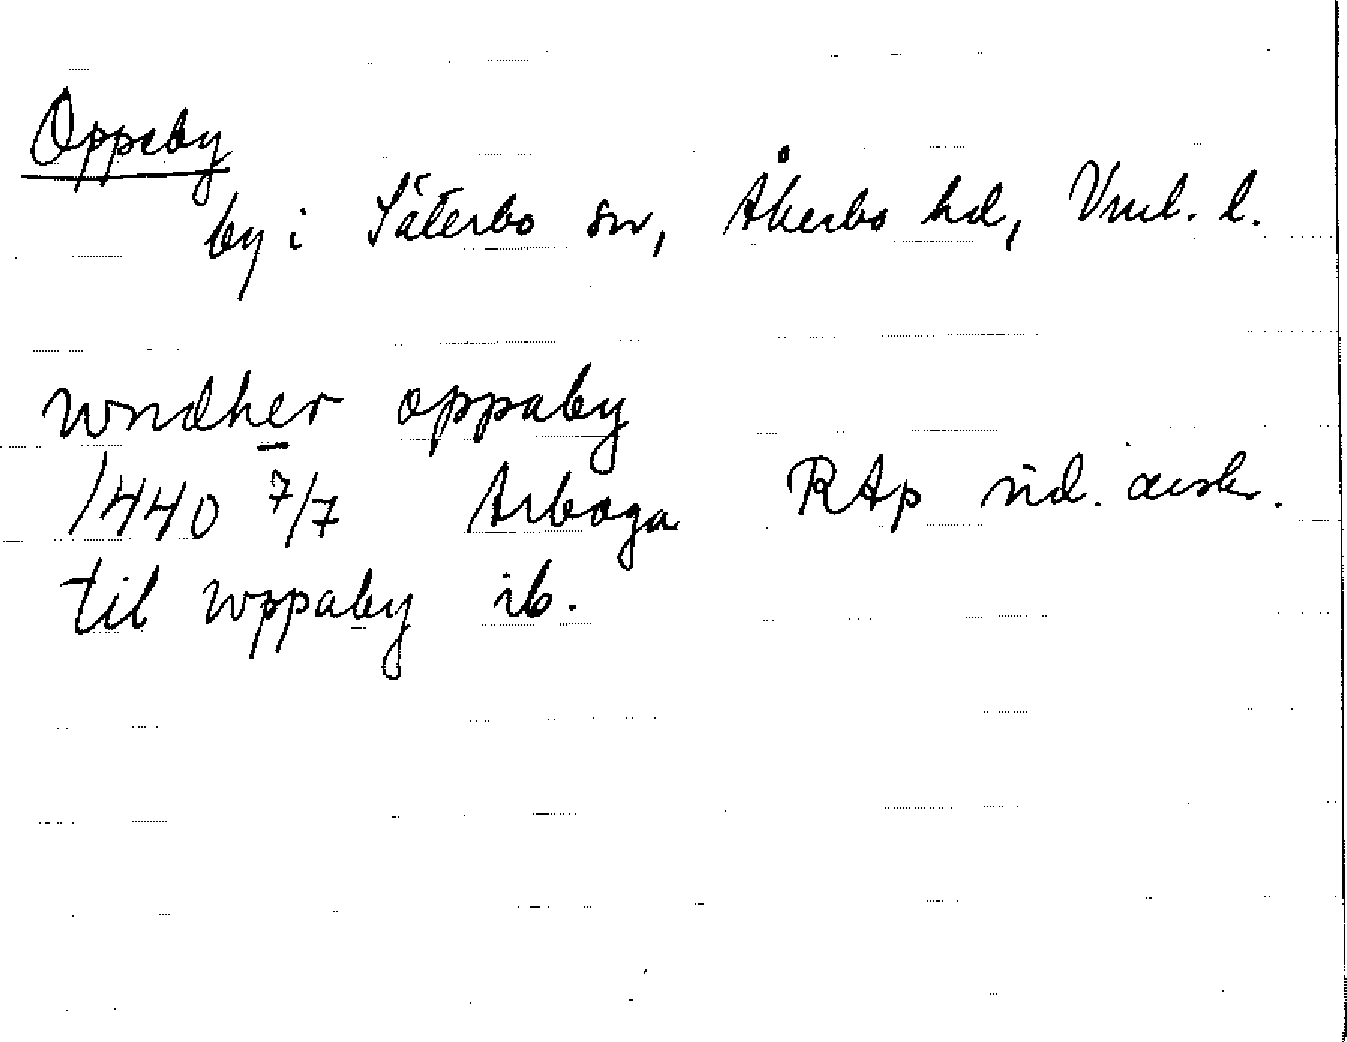 Oppeby
by i Säterbo sn, Åkerbo hd, Vml. l.
wndher oppaby
1440 7/7 Arboga RAp vid. avskr.
til wppaby ib.